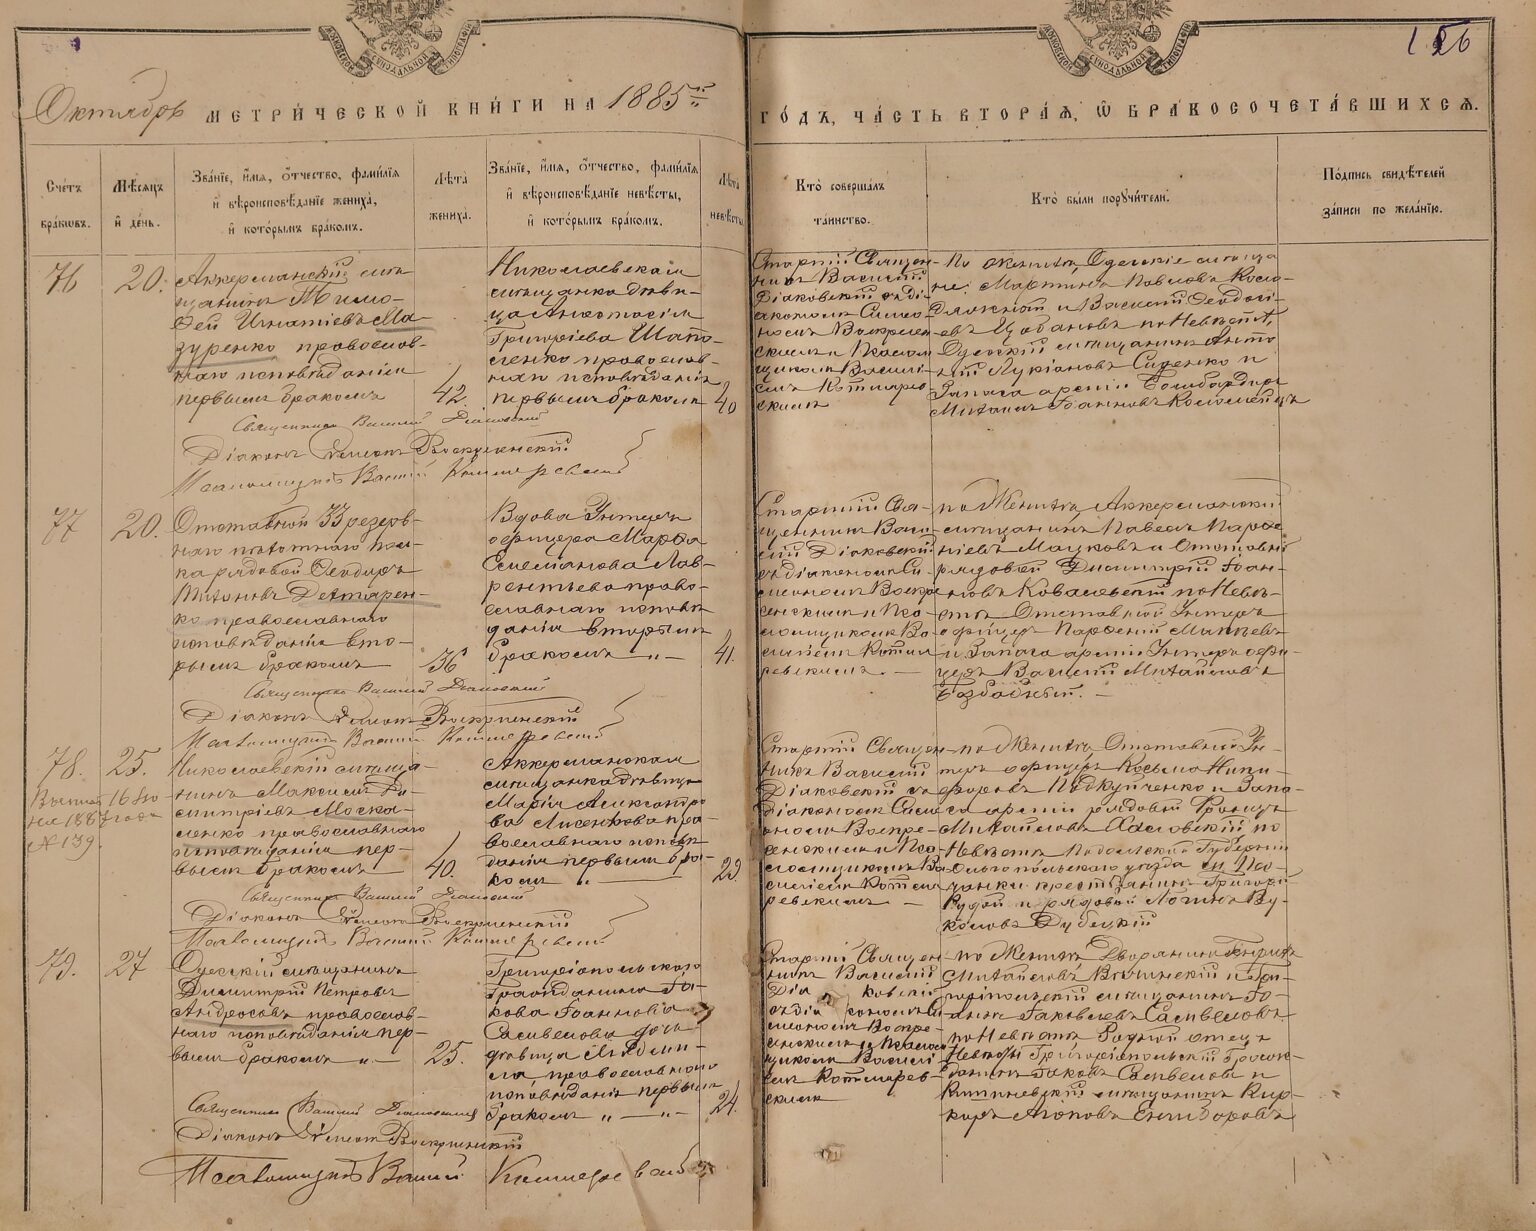 156
Октябрь МЕТРИ́ЧЕСКОЙ КНИ́ГИ НА 1885й ГО́ДЪ, ЧА́СТЬ ВТОРА́Я, Ѿ БРАКОСОЧЕТА́ВШИХСЯ.
Сче́тъ бра́кѡвъ.
Мѣ́сяцъ и҆ де́нь.
Зва́нїе, и҆́мя, ѻ҆́тчество, фами́лїя
и҆ вѣроисповѣ́данїе жениха̀,
и҆ кото́рымъ бра́комъ.
Лѣ́та жениха̀.
Зва́нїе, и҆́мя, ѻ҆́тчество, фами́лїя
и҆ вѣроисповѣ́данїе невѣ́сты,
и҆ кото́рымъ бра́комъ.
Лѣ́та невѣ́сты
Кто̀ соверша́лъ
та́инство.
Кто̀ бы́ли поручи́тели.
По́дпись свидѣ́телей
за́писи по жела́нїю.
76
20.
Аккерманскій мѣ-
щанинъ Тимо-
фей Игнатіевъ Ма-
зуренко православ-
наго исповѣданія
первымъ бракомъ
42.
Николаевская
мѣщанка дѣви-
ца Анастасія
Григоріева Шапо-
ленко православ-
наго исповѣданія
первымъ бракомъ
40
Старшій Священ-
никъ Василій
Діаковскій съ ді-
акономъ Симео-
номъ Воскресен-
скимъ и Псалом-
щикомъ Василі-
емъ Котляре-
скимъ
По женихѣ, Одесскіе мѣща
не: Мартинъ Павловъ
и Василій Феодосі-
евъ Цобановъ по Невѣстѣ,
Одесскій мѣщанинъ Анто
ній Лукіановъ Сиренко и
Запаса арміи Бомбардиръ
Священникъ Василій Діаковскій
Діаконъ Симеонъ Воскресенскій
Псаломщикъ Василій Котляревскій
77
20.
Отставной 33 резерв-
наго пѣхотнаго пол-
ка рядовой Феодоръ
Титовъ Дехтярен-
ко православнаго
исповѣданія вто-
рымъ бракомъ
36
Вдова Унтеръ
офицера Марфа
Емельянова Лав-
рентьева право-
славнаго исповѣ
данія вторымъ
бракомъ „ —
41.
Старшій Свя-
щенникъ Васи-
лій Діаковскій
съ діакономъ Си-
меономъ Воскре-
сенскимъ и Пса-
ломщикомъ Ва-
силіемъ Котля
ревскимъ. —
по Женихѣ, Аккерманскій
мѣщанинъ Павелъ Парфе
ніевъ Мацковъ и Отставной
рядовой Димитрій Іоан-
новъ Ковалевскій по Невѣ-
стѣ Отставной Унтеръ
офицеръ Парфеній Матвѣевъ
и Запаса арміи Унтеръ офи-
церъ Василій Михайловъ
Безбабный. —
Священникъ Василій Діаковскій
Діаконъ Симеонъ Воскресенскій
Псаломщикъ Василій Котляревскій
78.
25.
16 Ію-
ня 1887 года
№ 139
Николаевскій мѣща-
нинъ Максимъ Ди-
митріевъ Моска-
ленко православнаго
исповѣданія пер-
вымъ бракомъ
40.
Аккерманская
мѣщанка дѣвица
Марія Александро
ва Лисенкова пра-
вославнаго исповѣ
данія первымъ бра-
комъ „ —
23.
Старшій Священ-
никъ Василій
Діаковскій съ
діакономъ Симе
ономъ Воскре-
сенскимъ и Пса-
ломщикомъ Ва-
силіемъ Котля
ревскимъ —
по Женихѣ, Отставной Ун-
теръ офицеръ Косьма Ники-
форовъ Подкуйченко и Запа-
са арміи рядовый Францъ
Михайловъ Хасловскій по
Невѣстѣ Подольской Губерніи
Ольгопольскаго уѣзда
крестьянинъ Григорій
Рудой и рядовой Логинъ Лу-
Дубецкій
Священникъ Василій Діаковскій
Діаконъ Симеонъ Воскресенскій
Псаломщикъ Василій Котляревскій
79.
27
Одесскій мѣщанинъ
Димитрій Петровъ
Андросовъ православ-
наго исповѣданія пер-
вымъ бракомъ „ —
25.
Григоріопольскаго
Гражданина Іа-
кова Іоаннова
Самвелова дочь
дѣвица Людми-
ла православнаго
исповѣданія первымъ
бракомъ „ — „ —
24.
Старшій Священ
никъ Василій
Діаковскій
съ діакономъ Си
меономъ Воскре-
сенскимъ и Псалом
щикомъ Василі-
емъ Котлярев-
скимъ
по Женихѣ Дворянинъ
Михайловъ и Гри-
горіопольскій мѣщанинъ Іо-
аннъ Іаковлевъ Самвеловъ
по Невѣстѣ Родной отецъ
Невѣсты Григоріопольскій Граж-
данинъ Іаковъ Самвеловъ и
Кишиневскій мѣщанинъ Кир-
коръ
Священникъ Василій Діаковскій
Діаконъ Симеонъ Воскресенскій
Псаломщикъ Василій Котляревскій